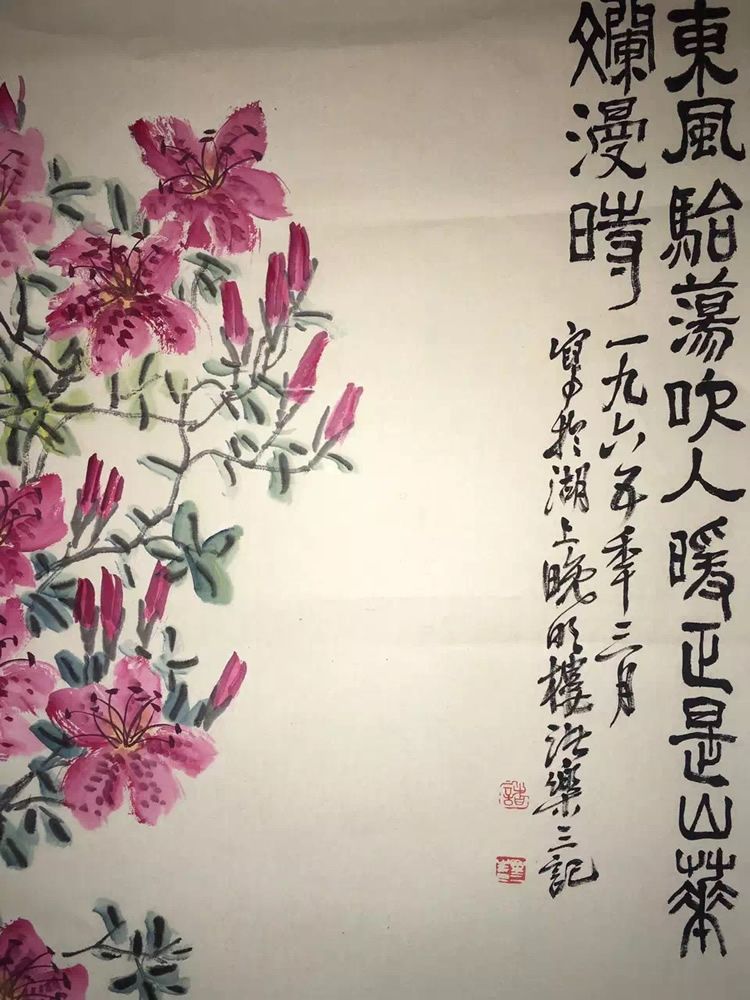 東風駘蕩吹人暖正是山華
爛漫時
一九六五年三月
寫於湖上晚明樓諸樂三記